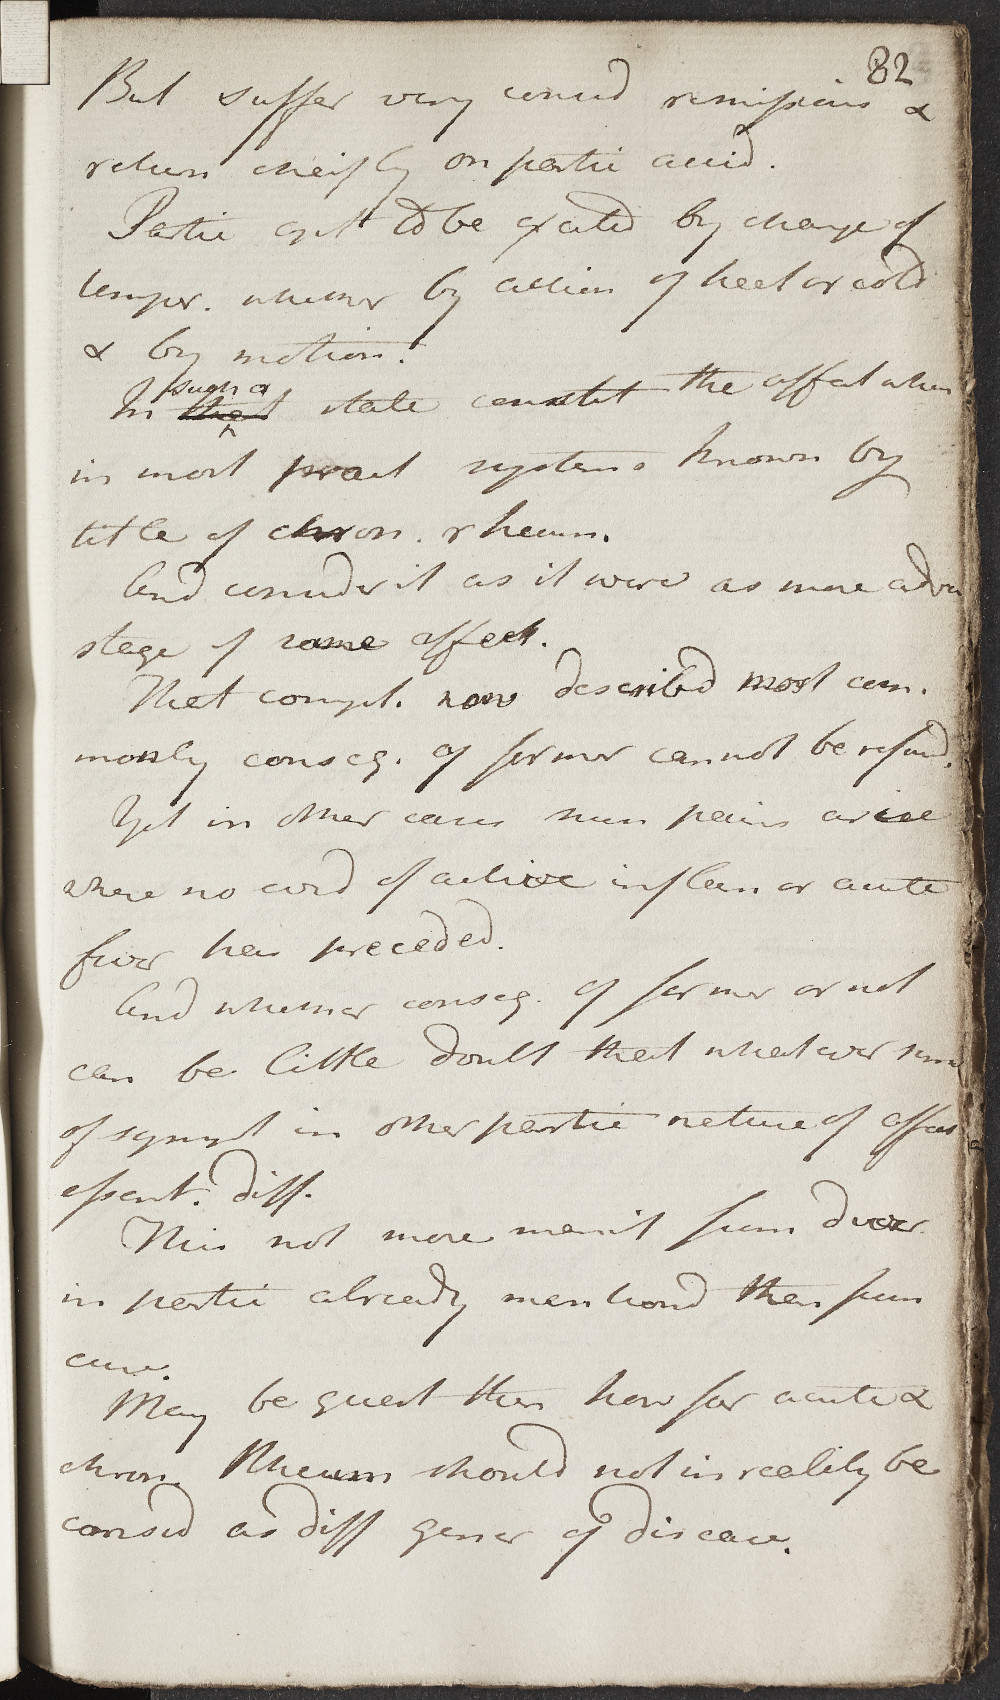 82
But suffer very consid remissions &
return cheifly on partic accid.
Partic apt to be excited by change of
temper. whether by action of heat or cold
& by motion.
In that such a state constit the affect when
in most pract systems known by
title of chron. rheum.
And consider it as it were as more adva
stage of same affect.
That compt. now described most com.
monly conseq. of former cannot be refused.
Yet in other cases such pains arise
where no evid of active inflam or acute
fever has preceded.
And whether conseq. of former or not
can be little doubt that whatever sim
of sympt in other partic nature of affect
essent. diff.
This not more manif from diver.
in partic already mentiond than from
cure.
May be quest then how far acute &
chron. Rheum should not in reality be
consid as diff gener of disease.